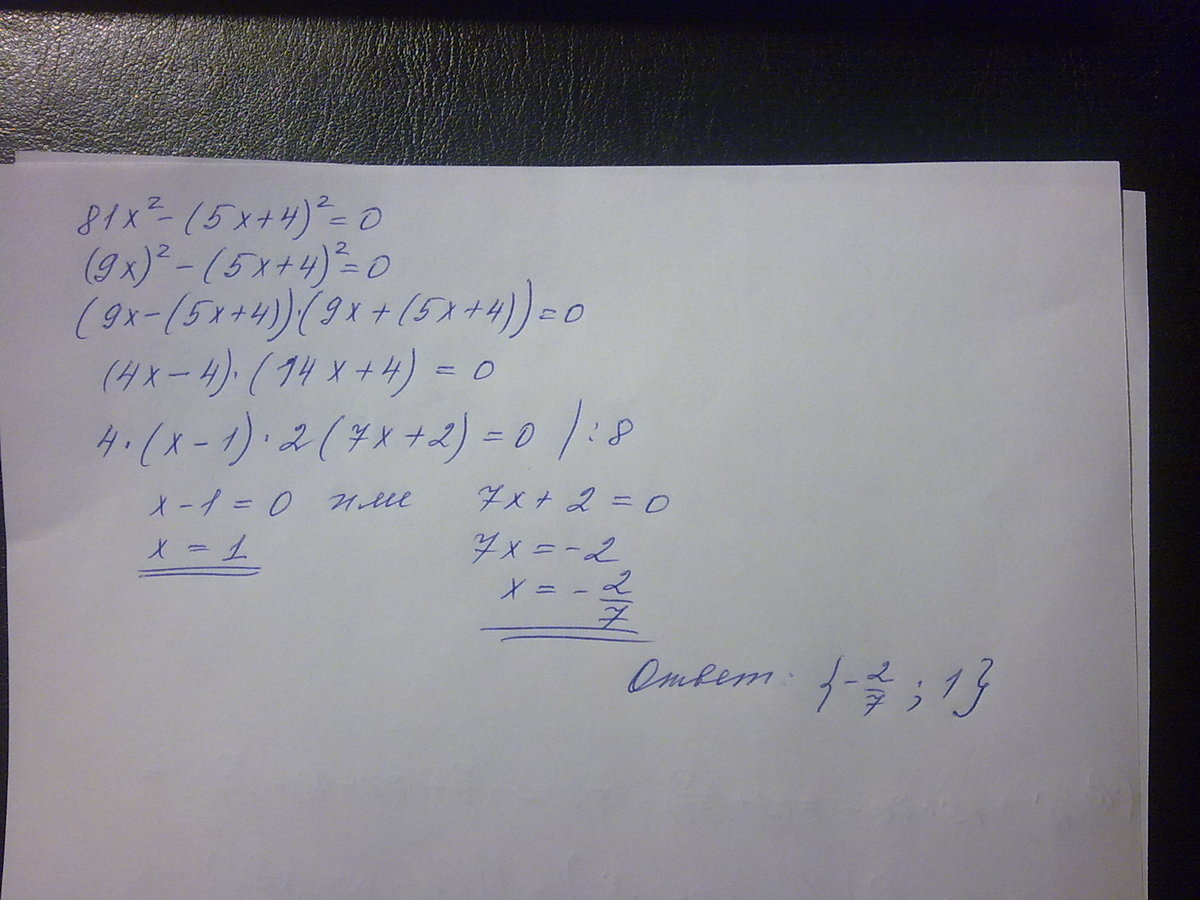 81x² - (5x+4)² = 0
(9x)² - (5x+4)² = 0
(9x-(5x+4))·(9x+(5x+4)) = 0
(4x-4)·(14x+4) = 0
4·(x-1)·2(7x+2) = 0 |:8
x-1=0 или 7x+2=0
x = 1 7x=-2
x = -2/7
Ответ: {-2/7; 1}